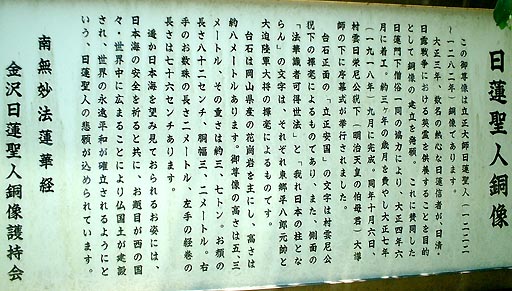 日蓮聖人銅像
この御尊像は立正大師日蓮聖人（一二二二
～一二八二年）銅像であります。
大正三年、数名の熱心な日蓮信者が、日清・
日露戦争における英霊を供養することを目的
として銅像の建立を発願。これに賛同した
日蓮門下僧俗一同の協力により、大正四年六
月に着工。約三ケ年の歳月を費やし大正七年
（一九一八年）九月に完成。同年十月六日、
村雲日栄尼公猊下（明治天皇の伯母君）大導
師の下に序幕式が挙行されました。
台石正面の「立正安国」の文字は村雲尼公
猊下の揮毫によるものであり、また、側面の
「法華識者可得世法」と「我れ日本の柱とな
らん」の文字は、それぞれ東郷平八郎元帥と
大迫陸軍大将の揮毫によるものです。
台石は岡山県産の花崗岩を主にし、高さは
約八メートルあります。御尊像の高さは五、三
メートル、その重さは約三、七トン。お顔の
長さ八十二センチ、胴幅三、二メートル。右
手のお数珠の長さ二メートル、左手の経巻の
長さは七十六センチあります。
遥か日本海を望み見ておられるお姿には、
日本海の安全を祈ると共に、お題目が西の国
々・世界中に広まることにより仏国土が建設
され、世界の永遠平和が確立されるようにと
いう、日蓮聖人の悲願が込められています。
南無妙法蓮華経
金沢日蓮聖人銅像護持会